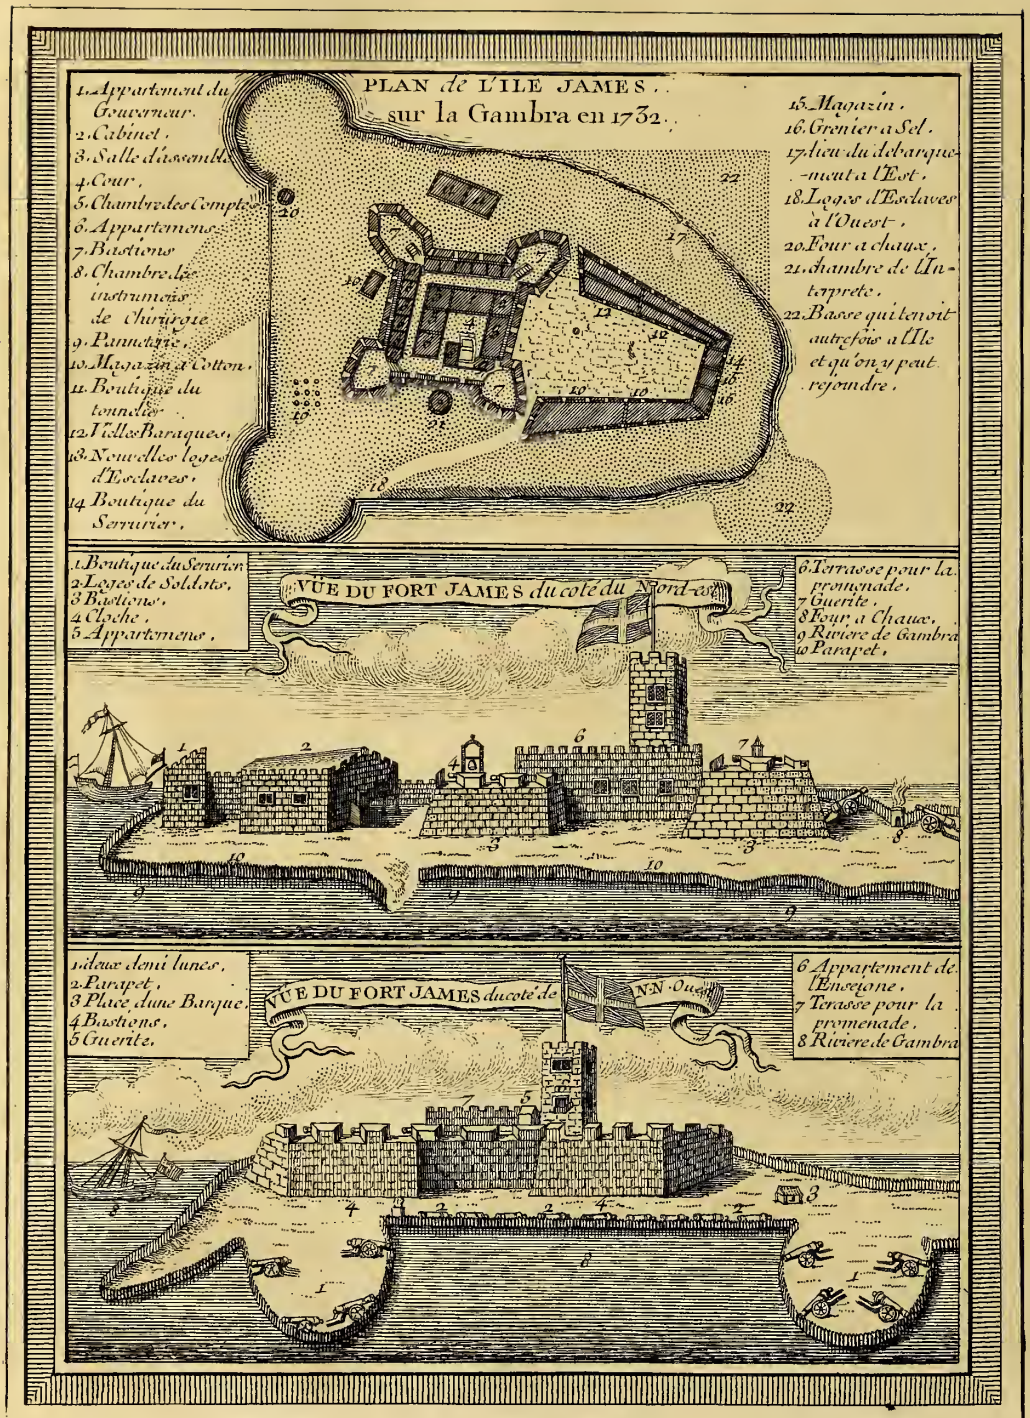 PLAN de L'ILE JAMES.
sur la Gambra en 1732.
1. Appartement du
Gouverneur.
2. Cabinet.
3. Salle d'assemblé
4. Cour.
5. Chambre des Comptes
6. Appartemens
7. Bastions
8. Chambre des
instrumens
de Chirurgie
9. Panneterie.
10. Magazin a Cotton.
11. Boutique du
tonnelier
12. Vielles Baraques.
13. Nouvelles loges
d'Esclaves.
14 Boutique du
Serrurier.
15. Magazin.
16. Grenier a Sel.
17. lieu du débarque-
-ment a l'Est.
18. Loges d'Esclaves
à l'Ouest.
20. Four a chaux.
21. chambre de l'In-
terprete.
22. Basse qui tenoit
autrefois a l'Ile
et qu'on y peut
rejoindre.
22
17
20
7
7
10
4
12
12
14
16
16
10
10
7
7
19
21
18
22
VÜE DU FORT JAMES du coté du Nord-est
1. Boutique du Serurier
2. Loges de Soldats.
3 Bastions.
4 Cloche.
5 Appartemens.
6. Terrasse pour la
promenade.
7 Guerite.
8 Four a Chaux.
9 Riviere de Gambra
10 Parapet.
1
2
4
6
7
3
3
8
10
10
9
9
9
VÜE DU FORT JAMES du coté de N·N·Ouest
1. deux demi lunes.
2. Parapet.
3 Place d'une Barque
4 Bastions.
5 Guerite.
6 Appartement de
l'Enseigne.
7 Terasse pour la
promenade.
8 Riviere de Gambra
7
5
3
8
4
2
2
4
2
8
1
1